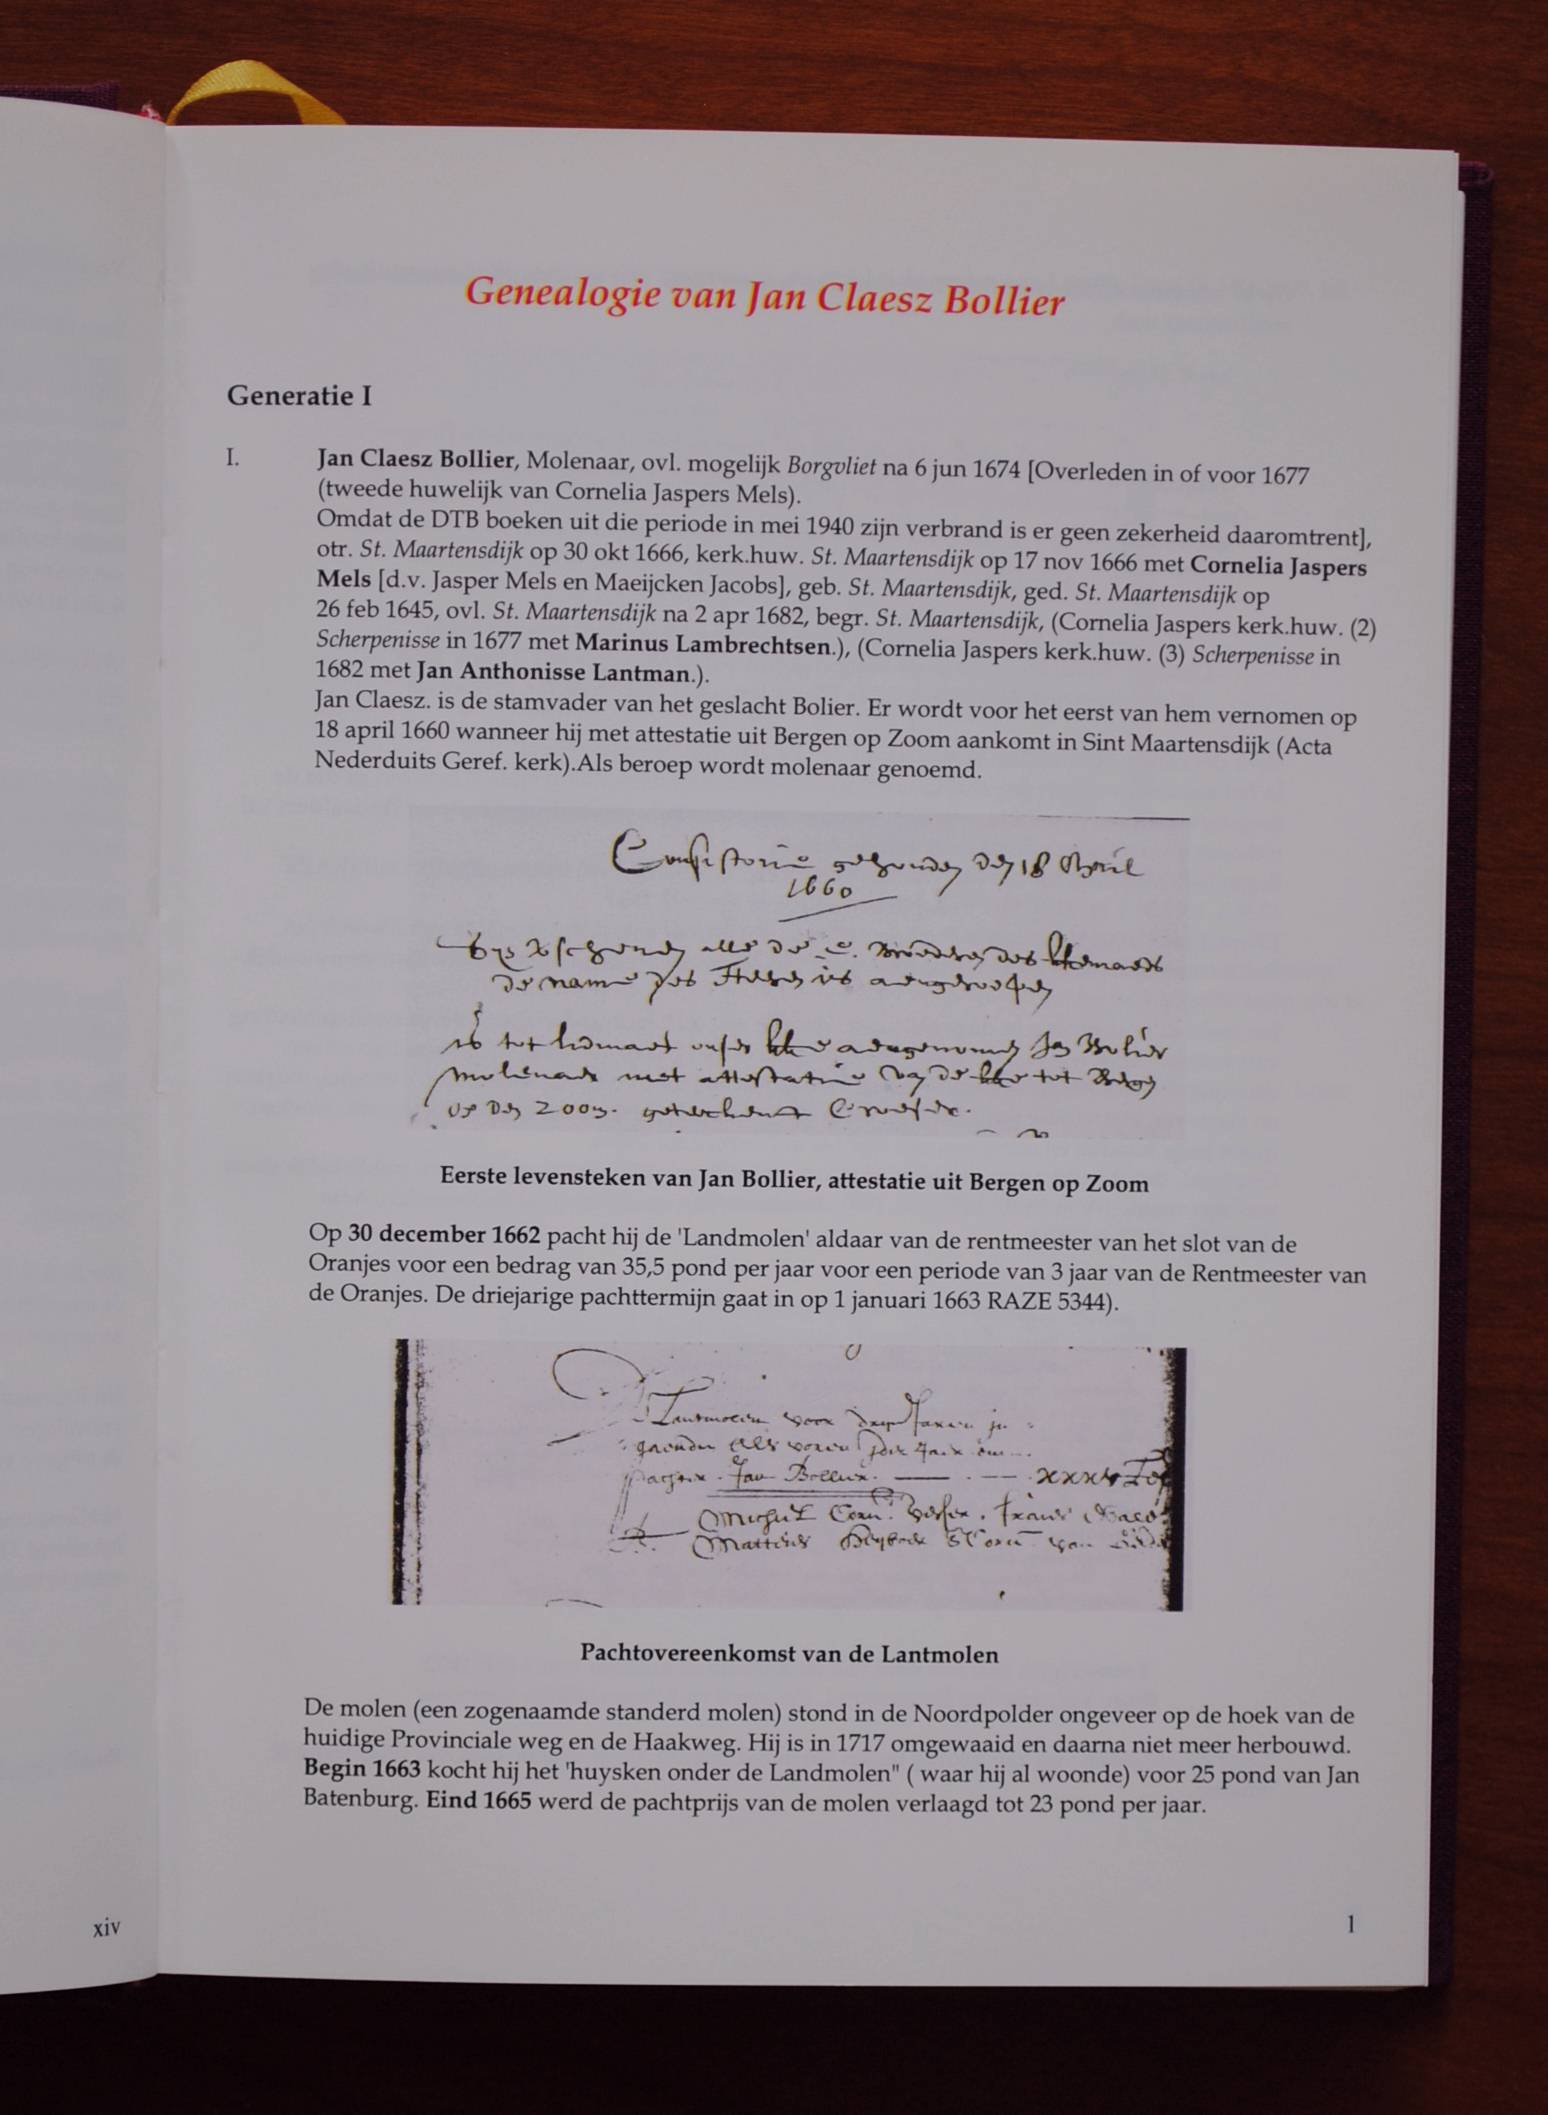 Genealogie van Jan Claesz Bollier
Generatie I
I. Jan Claesz Bollier, Molenaar, ovl. mogelijk Borgvliet na 6 jun 1674 [Overleden in of voor 1677
(tweede huwelijk van Cornelia Jaspers Mels).
Omdat de DTB boeken uit die periode in mei 1940 zijn verbrand is er geen zekerheid daaromtrent],
otr. St. Maartensdijk op 30 okt 1666, kerk.huw. St. Maartensdijk op 17 nov 1666 met Cornelia Jaspers
Mels [d.v. Jasper Mels en Maeijcken Jacobs], geb. St. Maartensdijk, ged. St. Maartensdijk op
26 feb 1645, ovl. St. Maartensdijk na 2 apr 1682, begr. St. Maartensdijk, (Cornelia Jaspers kerk.huw. (2)
Scherpenisse in 1677 met Marinus Lambrechtsen.), (Cornelia Jaspers kerk.huw. (3) Scherpenisse in
1682 met Jan Anthonisse Lantman.).
Jan Claesz. is de stamvader van het geslacht Bolier. Er wordt voor het eerst van hem vernomen op
18 april 1660 wanneer hij met attestatie uit Bergen op Zoom aankomt in Sint Maartensdijk (Acta
Nederduits Geref. kerk).Als beroep wordt molenaar genoemd.
Consistorie gehouden den 18 April
1660
alle de
de name des Heeren is aengeroepen
is tot lidmaet onser aengenomen Jan Bolier
molenaer met attestatie van de tot Bergen
op den Zoom.
Eerste levensteken van Jan Bollier, attestatie uit Bergen op Zoom
Op 30 december 1662 pacht hij de 'Landmolen' aldaar van de rentmeester van het slot van de
Oranjes voor een bedrag van 35,5 pond per jaar voor een periode van 3 jaar van de Rentmeester van
de Oranjes. De driejarige pachttermijn gaat in op 1 januari 1663 RAZE 5344).
Lantmolen voor drye Jaren in
gaende als voren
pachter Jan Bollier
Pachtovereenkomst van de Lantmolen
De molen (een zogenaamde standerd molen) stond in de Noordpolder ongeveer op de hoek van de
huidige Provinciale weg en de Haakweg. Hij is in 1717 omgewaaid en daarna niet meer herbouwd.
Begin 1663 kocht hij het 'huysken onder de Landmolen" ( waar hij al woonde) voor 25 pond van Jan
Batenburg. Eind 1665 werd de pachtprijs van de molen verlaagd tot 23 pond per jaar.
xiv
1